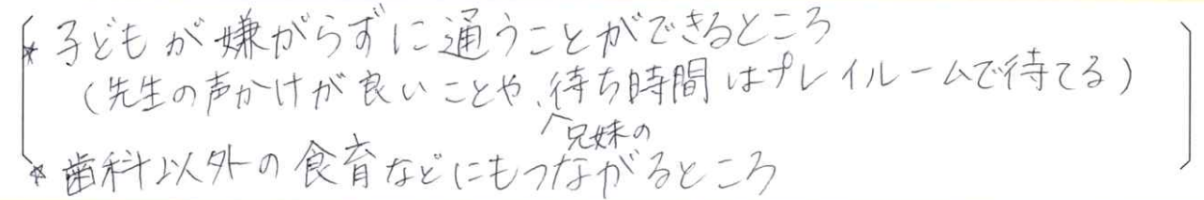 ☆ 子どもが嫌がらずに通うことができるところ
(先生の声かけが良いことや、兄妹の待ち時間はプレイルームで待てる)
☆ 歯科以外の食育などにもつながるところ